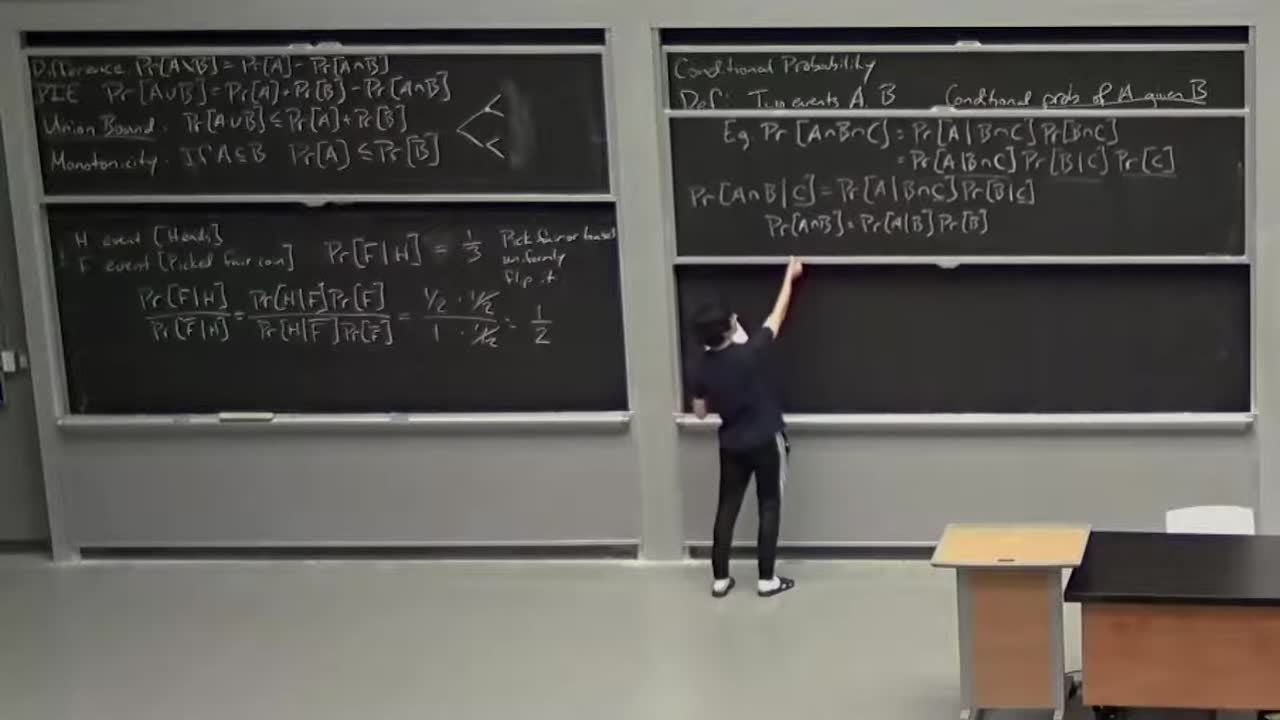 Difference Pr[A\B] = Pr[A] - Pr[A∩B]
PIE Pr[A∪B] = Pr[A] + Pr[B] - Pr[A∩B]
Union Bound. Pr[A∪B] ≤ Pr[A] + Pr[B]
Monotonicity. If A⊆B Pr[A] ≤ Pr[B]
H event [Heads]
F event [Picked fair coin]
Pr[F|H] = 1/3
Pick fair or biased
uniformly
flip it
Pr[F|H] / Pr[F̅|H] = Pr[H|F]Pr[F] / Pr[H|F̅]Pr[F̅] = 1/2 · 1/2 / 1 · 1/2 = 1/2
Conditional Probability
Def: Two events A, B Conditional prob of A given B
Eg. Pr[A∩B∩C] = Pr[A|B∩C] Pr[B∩C]
= Pr[A|B∩C] Pr[B|C] Pr[C]
Pr[A∩B|C] = Pr[A|B∩C] Pr[B|C]
Pr[A∩B] = Pr[A|B] Pr[B]